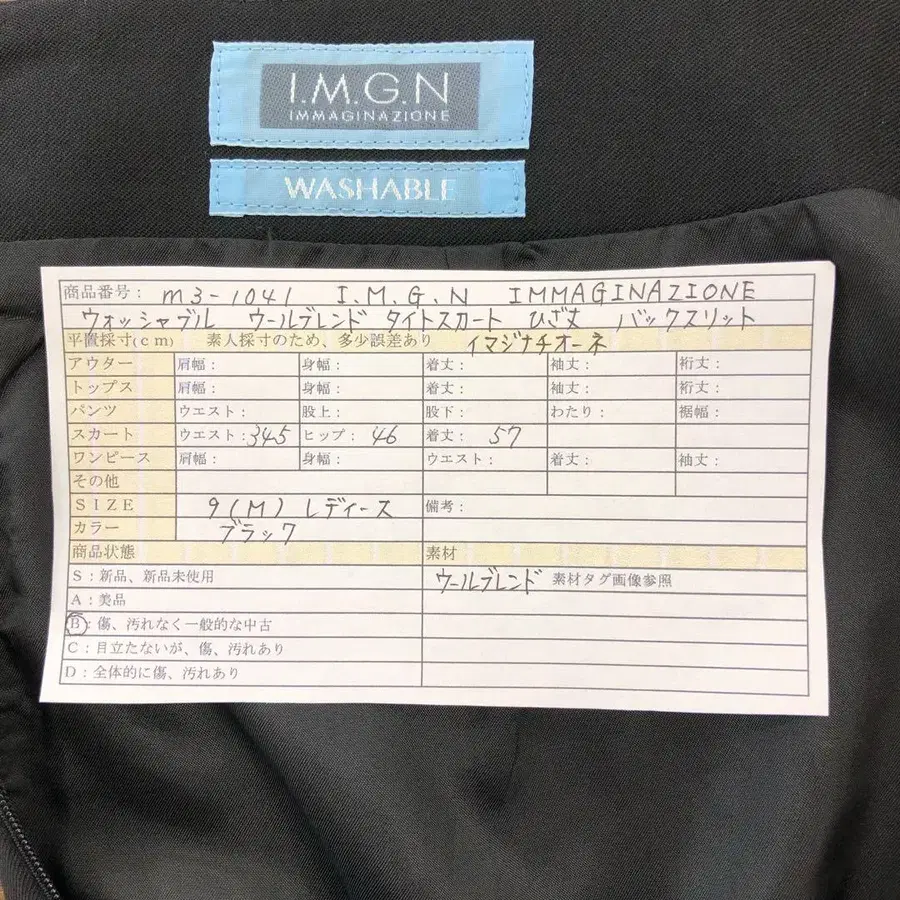 I.M.G.N
IMMAGINAZIONE
WASHABLE
商品番号： m3-1041 I.M.G.N IMMAGINAZIONE
ウォッシャブル ウールブレンド タイトスカート ひざ丈 バックスリット
平置採寸(cm) 素人採寸のため、多少誤差あり イマジナチオーネ
アウター 肩幅： 身幅： 着丈： 袖丈： 裄丈：
トップス 肩幅： 身幅： 着丈： 袖丈： 裄丈：
パンツ ウエスト： 股上： 股下： わたり： 裾幅：
スカート ウエスト：34.5 ヒップ：46 着丈：57
ワンピース 肩幅： 身幅： ウエスト： 着丈： 袖丈：
その他
SIZE 9(M) レディース 備考：
カラー ブラック
商品状態 素材
S：新品、新品未使用 ウールブレンド 素材タグ画像参照
A：美品
B：傷、汚れなく一般的な中古
C：目立たないが、傷、汚れあり
D：全体的に傷、汚れあり